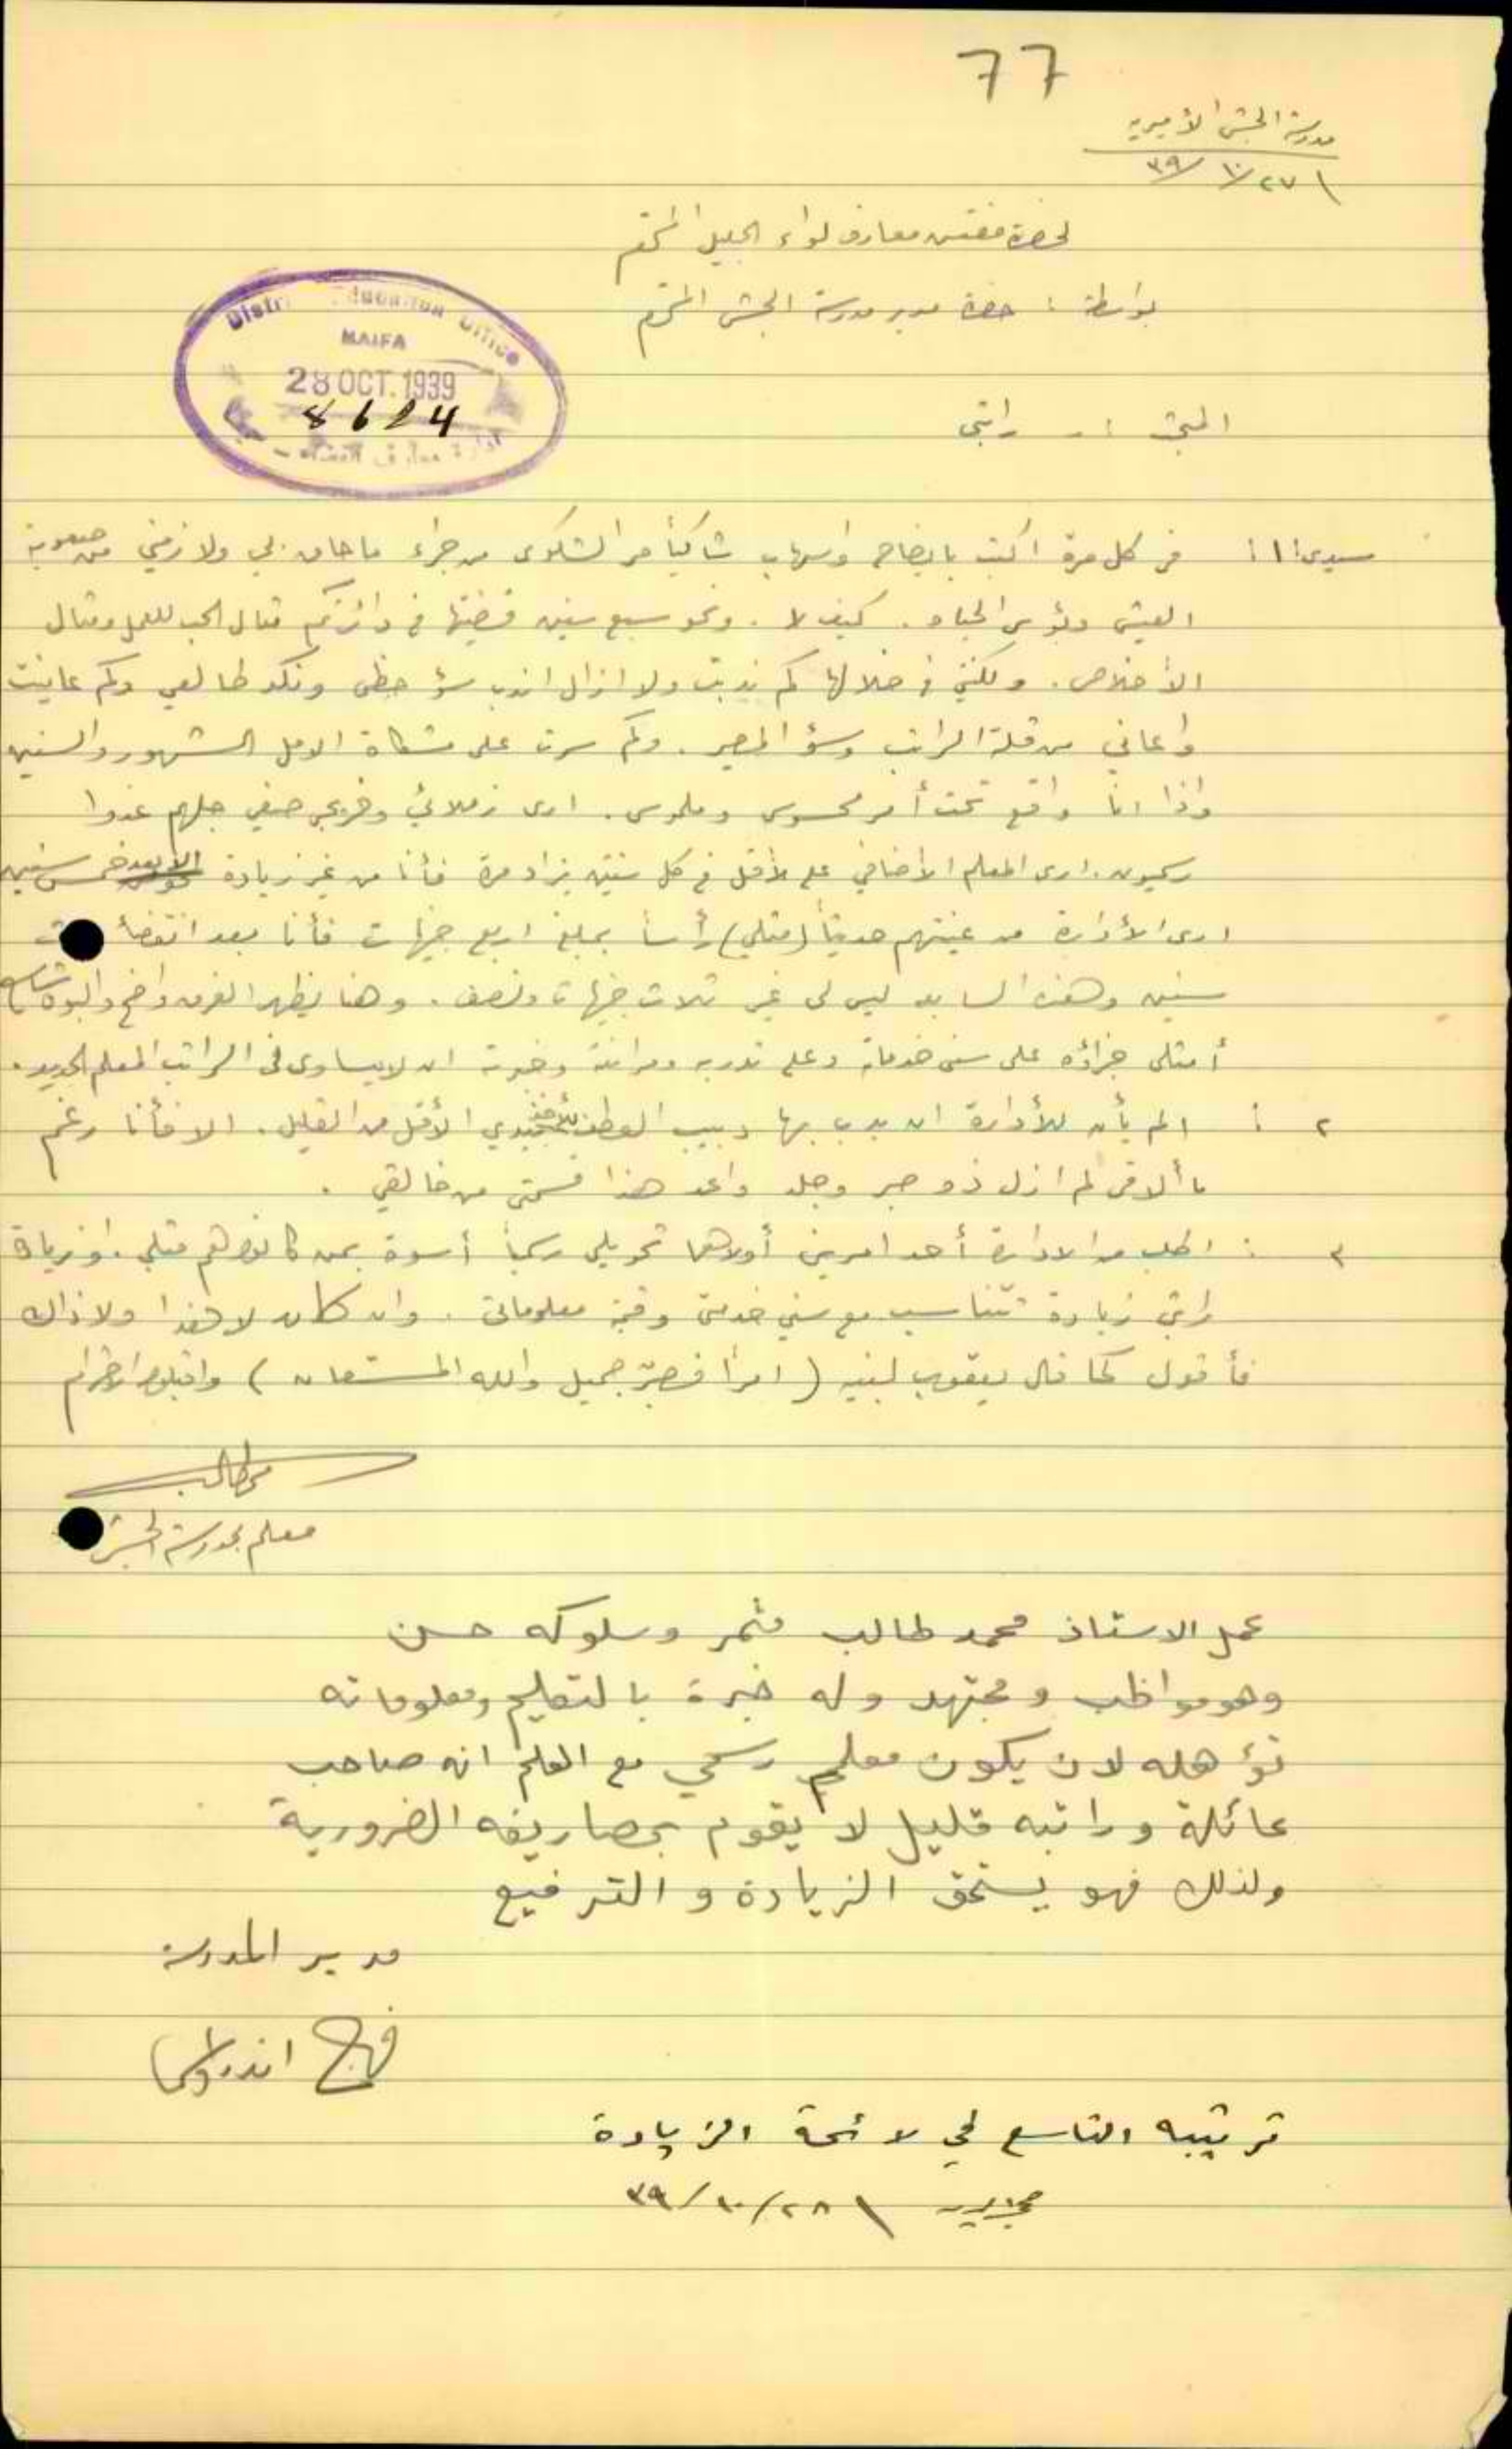 77
مدرسة الجش الأميرية
٢٧/١٠/٣٩
لحضرة مفتش معارف لواء الجليل المحترم
بواسطة : حضرة مدير مدرسة الجش المحترم
District Education Office
HAIFA
28 OCT. 1939
8624
المبحث :- راتبي
سيدي : ١ : في كل مرة اكتب بايضاح واسهاب شاكياً مر الشكوى من جراء ما حاق بي ولازمني من صعوبة
العيش وبؤس الحياة . كيف لا . ونحو سبع سنين قضيتها في دائرتكم مثال الحب للعمل ومثال
الأخلاص . ولكني في خلالها كم ندبت ولا ازال اندب سؤ حظي ونكد طالعي وكم عانيت
واعاني من قلة الراتب وسؤ المصير . وكم سرت على مشكاة الامل الشهور والسنين
واذا انا واقع تحت أمر محسوس وملموس . ارى زملائي وخريجي صفي جلهم غدوا
رسميون . ارى المعلم الأضافي على الأقل في كل سنتين يزاد مرة فأنا من غير زيادة الا بعد خمس سنين
ارى الأدارة من عينتهم حديثاً (مثلي) رأساً بمبلغ اربع جنيهات فأنا بعد انقضاء ست
سنين وهذه السابعة ليس لي غير ثلاث جنيهات ونصف . وهنا يظهر الفرق واضح والبون شاسع
أمثلي جزاؤه على سني خدماته وعلى تدربه ومرانته وخبرته ان لا يساوى في الراتب المعلم الجديد .
٢ : الم يأن للأدارة ان يدب بها دبيب العطف الأقل من القليل . الا فأنا رغم
ما ألاقي لم ازل ذو صبر وجلد واعد هذا قسمتي من خالقي .
٣ : اطلب من الادارة أحد امرين أولاهما تحويلي رسمياً أسوة بمن كانوا هم مثلي . او زيادة
راتبي زيادة تتناسب مع سني خدمتي وقيمة معلوماتي . وان كان لا هذا ولا ذاك
فأقول كما قال يعقوب لبنيه ( امراً فصبر جميل والله المستعان ) واقبلوا الاحترام
م طالب
معلم بمدرسة الجش
عمل الاستاذ محمد طالب مثمر وسلوكه حسن
وهو مواظب ومجتهد وله خبرة بالتعليم ومعلوماته
تؤهله لان يكون معلم رسمي مع العلم انه صاحب
عائلة وراتبه قليل لا يقوم بمصاريفه الضرورية
ولذلك فهو يستحق الزيادة والترفيع
مدير المدرسة
فرح اندراوس
ترتيبه التاسع في لائحة الزيادة
٢٨/١٠/٣٩